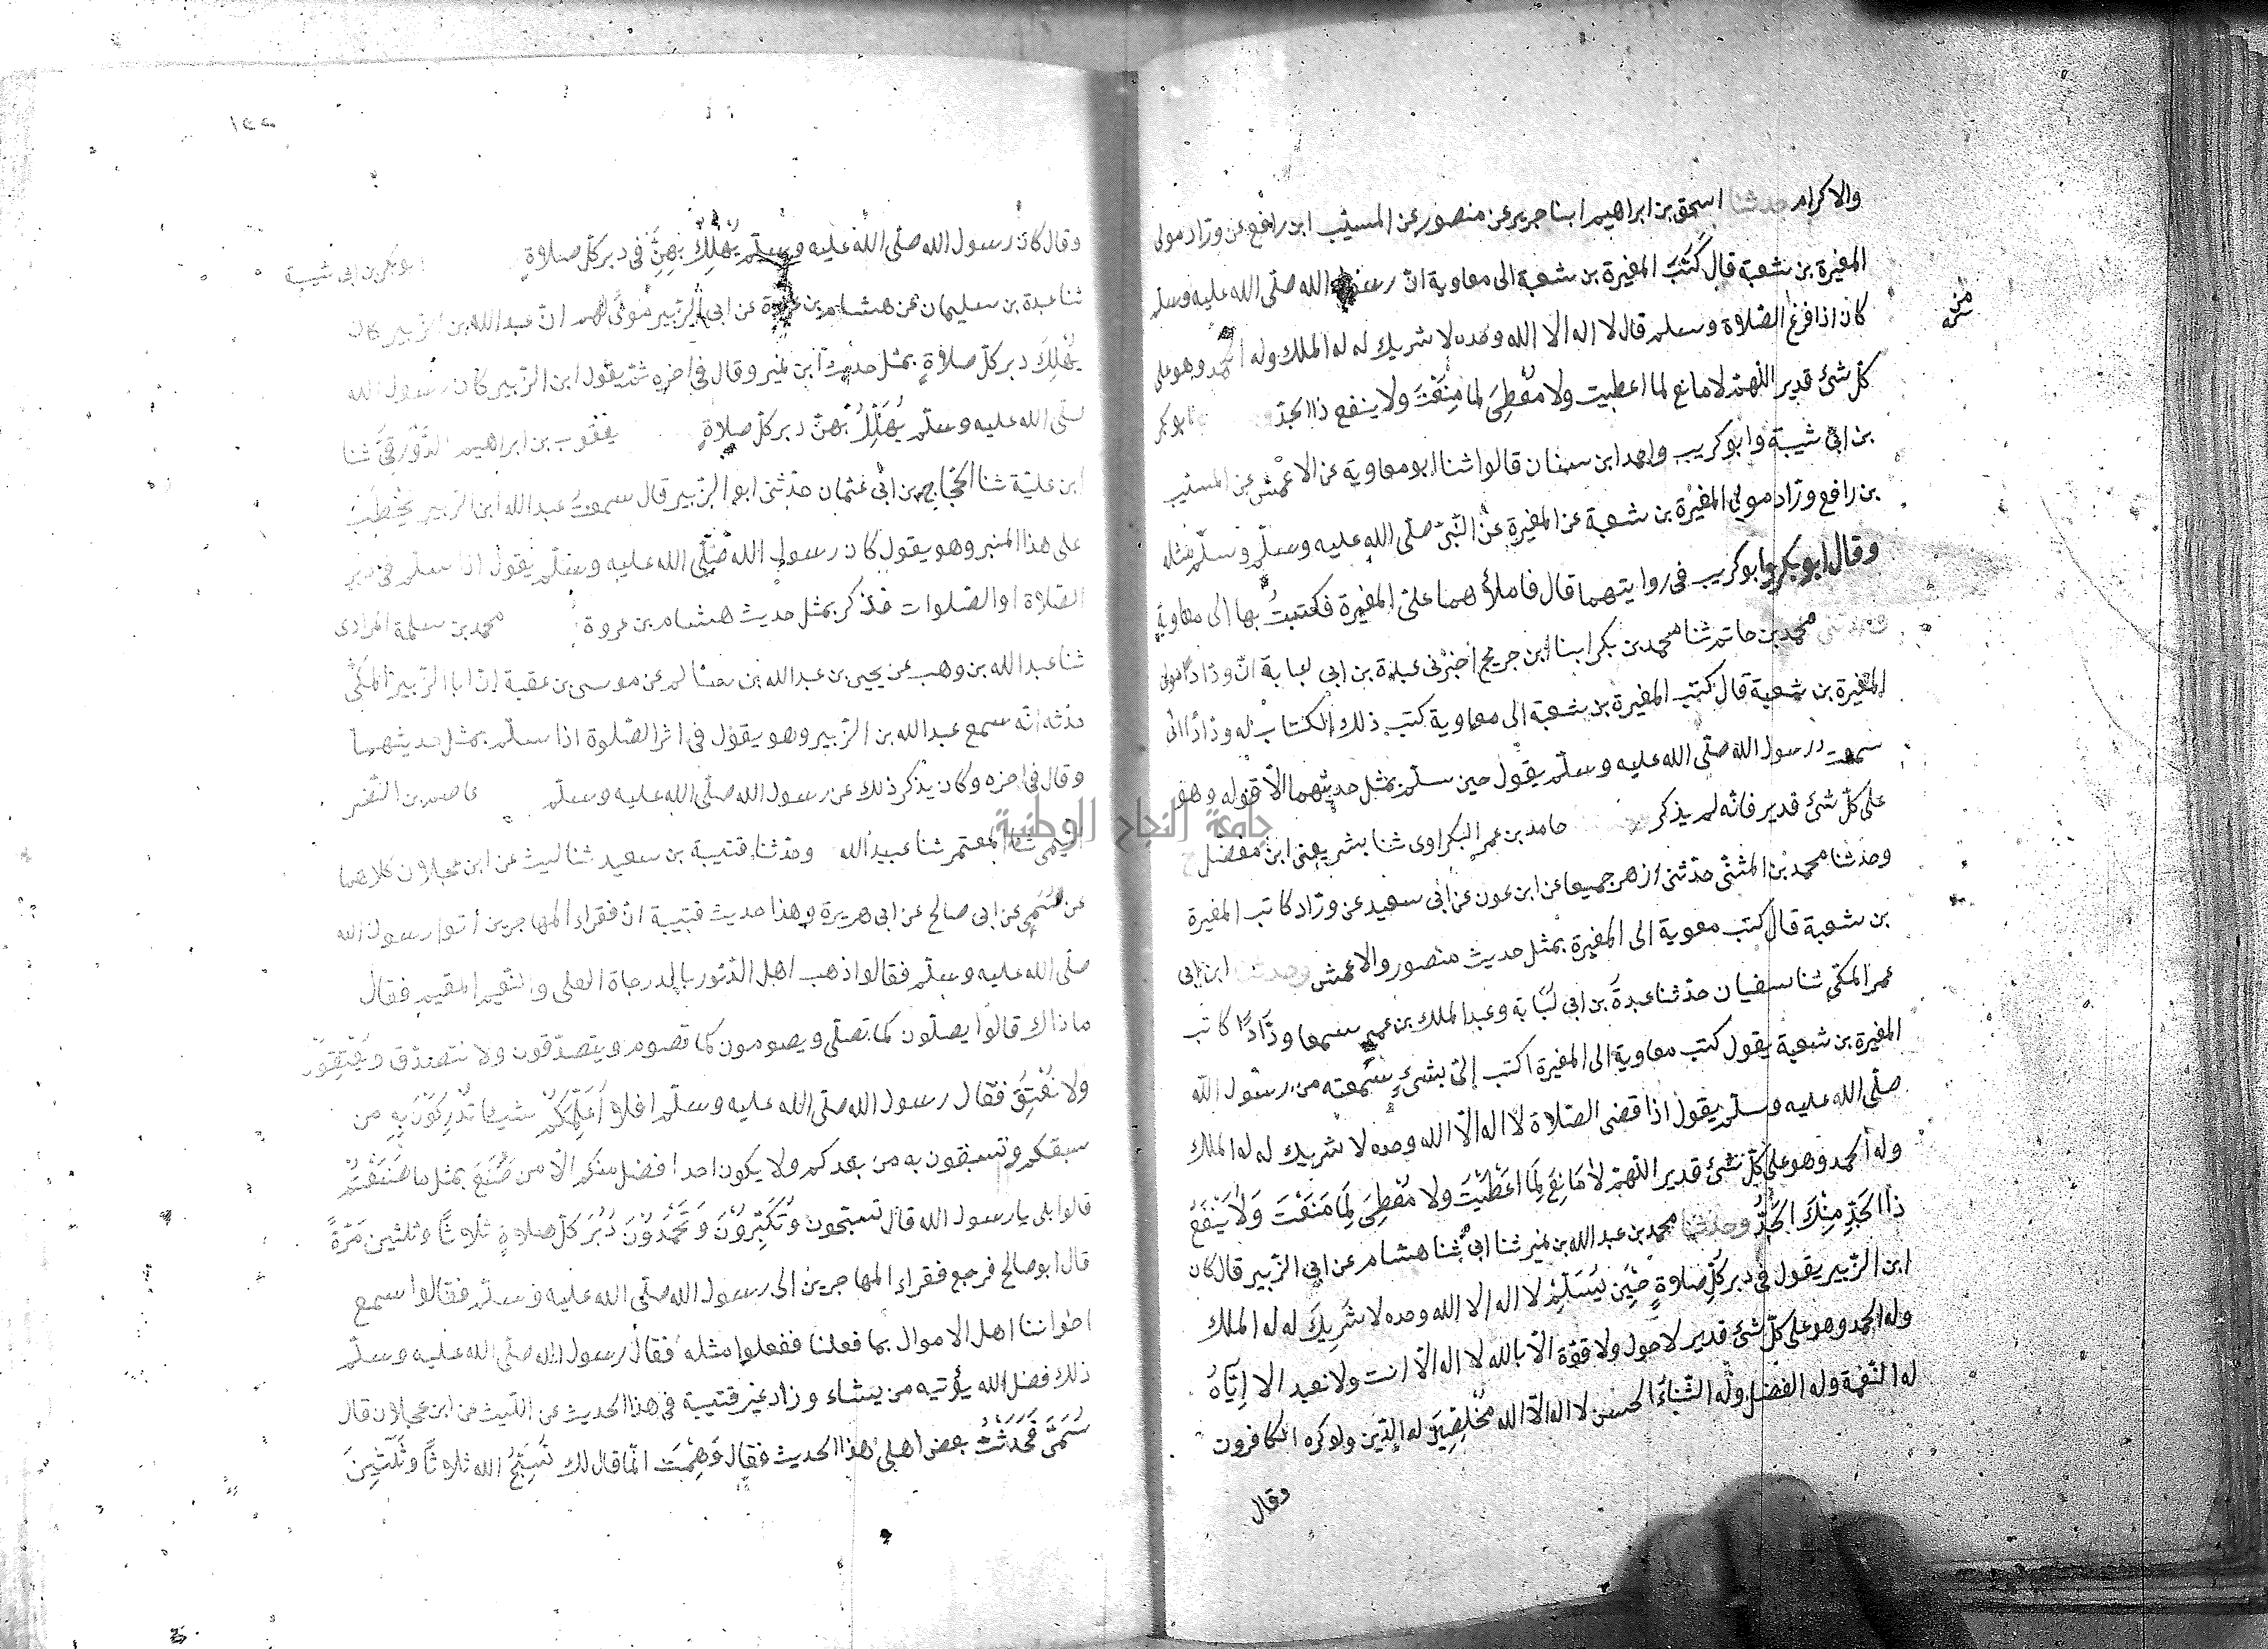 والاكرام حدثنا اسحق بن ابراهيم ابنا جرير عن منصور عن المسيب ابن رافع عن ورّاد مولى
المغيرة بن شعبة قال كَتَبَ المغيرة بن شعبة الى معاوية انّ رسول الله صلّى الله عليه وسلم
كان اذا فرغ الصّلاة وسلم قال لا اله الا الله وحده لا شريك له له الملك وله الحمد وهو على
من
كلّ شئ قدير اللّهمّ لا مانع لما اعطيت ولا مُعْطِىَ لما مَنَعْتَ ولا ينفع ذا الجدّ وابو بكر
بن ابى شيبة وابو كريب واحمد ابن سنان قالوا ثنا ابو معاوية عن الاعمش عن المسيب
بن رافع ورّاد مولى المغيرة بن شعبة عن المغيرة عن النّبىّ صلّى الله عليه وسلّم وسلّم مثله
وقال ابو بكر وابو كريب فى روايتهما قال فاملأهما علىّ المغيرة فكتبتُ بها الى معاوية
وحدثنى محمد بن حاتم ثنا محمد بن بكر ابنا ابن جريج اخبرنى عبدة بن ابى لبابة انّ ورّادًا مولى
المغيرة بن شعبة قال كتب المغيرة بن شعبة الى معاوية كتب ذلك الكتاب له ورّادًا انّى
سمعت رسول الله صلّى الله عليه وسلّم يقول حين سلّم بمثل حديثهما الّا قوله وهو
على كلّ شئ قدير فانّه لم يذكر حامد بن عمر البكراوى ثنا بشر يعنى ابن مفضل ح
وحدثنا محمد بن المثنّى حدّثنى ازهر جميعا عن ابن عون عن ابى سعيد عن ورّاد كاتب المغيرة
بن شعبة قال كتب معوية الى المغيرة بمثل حديث منصور والاعمش وحدثنا ابن ابى
عمر المكى ثنا سفيان حدّثنا عبدة بن ابى لبابة وعبد الملك بن عمير سمعا ورّادًا كاتب
المغيرة بن شعبة يقول كتب معاوية الى المغيرة اكتب إلىّ بشئٍ سمعته من رسول الله
صلّى الله عليه وسلّم يقول اذا قضى الصّلاة لا اله الّا الله وحده لا شريك له له الملك
وله الحمد وهو على كلّ شئ قدير اللّهمّ لا مَانِعَ لِمَا اَعْطَيْتَ ولا مُعْطِىَ لِمَا مَنَعْتَ وَلَا يَنْفَعُ
ذا الجَدِّ مِنْكَ الجَدُّ وحدثنا محمد بن عبد الله بن نمير ثنا ابى ثنا هشام عن ابى الزّبير قال كان
ابن الزّبير يقول فى دبر كلّ صلاةٍ حِيْنَ يُسَلِّمُ لا اله الا الله وحده لا شَرِيكَ له له الملك
وله الحمد وهو على كلّ شئ قدير لا حول ولا قوّة الّا بالله لا اله الّا انت ولا نعبد الا اِيَّاهُ
له النّعمة وله الفضل وله الثّناءُ الحسن لا اله الّا الله مُخْلِصِيْنَ له الدّين ولو كره الكافرون
وقال
١٤٤
وقال كان رسول الله صلّى الله عليه وسلّم يُهَلِّلُ بِهِنَّ فى دبر كلّ صلاةٍ ابو بكر بن ابى شيبة
ثنا عبدة بن سليمان عن هشام بن عروة عن ابى الزّبير مولًى لهم انّ عبد الله بن الزّبير كان
يُهَلِّلُ دبر كلّ صلاةٍ بمثل حديث ابن نمير وقال فى اخره ثمّ يقول ابن الزّبير كان رسول الله
صلّى الله عليه وسلّم يُهَلِّلُ بهنّ دبر كلّ صلاةٍ يعقوب بن ابراهيم الدَّوْرَقِىّ ثنا
ابن عليّة ثنا الحجّاج بن ابى عثمان حدّثنى ابو الزّبير قال سمعت عبد الله ابن الزّبير يخطُبُ
على هذا المنبر وهو يقول كان رسول الله صلّى الله عليه وسلّم يقول اذا سلّم فى دبر
الصّلاة او الصّلوات فذكر بمثل حديث هشام بن عروة محمد بن سلمة المرادى
ثنا عبد الله بن وهب عن يحيى بن عبد الله بن سالم عن موسى بن عقبة انّ ابا الزّبير المكّى
حدّثه انّه سمع عبد الله بن الزّبير وهو يقول فى اثر الصّلوة اذا سلّم بمثل حديثهما
وقال فى اخره وكان يذكر ذلك عن رسول الله صلّى الله عليه وسلّم عاصم بن النّضر
التيمى ثنا المعتمر ثنا عبيد الله وحدّثنا قتيبة بن سعيد ثنا ليث عن ابن عجلان كلاهما
عن سُمَىّ عن ابى صالح عن ابى هريرة وهذا حديث قتيبة انّ فقراء المهاجرين أتوا رسول الله
صلّى الله عليه وسلّم فقالوا ذهب اهل الدّثور بالدرجاة العلى والنّعيم المقيم فقال
ما ذاك قالوا يصلّون كما نصلّى ويصومون كما نصوم ويتصدّقون ولا نتصدّق ويُعْتِقُوْنَ
ولا نُعْتِقُ فقال رسول الله صلّى الله عليه وسلّم افلا اُعَلِّمُكُمْ شيئا تُدْرِكُوْنَ بِهِ من
سبقكم وتسبقون به من بعدكم ولا يكون احد افضل منكم الّا من صَنَعَ بمثل ما صَنَعْتُمْ
قالوا بلى يا رسول الله قال تسبّحون وَتُكَبِّرُوْنَ وَتَحْمَدُوْنَ دُبُرَ كلّ صلاةٍ ثلاثًا وثلثين مَرّةً
قال ابو صالح فرجع فقراء المهاجرين الى رسول الله صلّى الله عليه وسلّم فقالوا سمع
اخواننا اهل الاموال بما فعلنا ففعلوا مثله فقال رسول الله صلى الله عليه وسلّم
ذلك فضل الله يؤتيه من يشاء وزاد غير قتيبة فى هذا الحديث عن اللّيث عن ابن عجلان قال
سُمَىّ فَحَدَّثْتُ بعض اهلى هذا الحديث فقال وَهِمْتَ انّما قال لك تُسَبِّحُ الله ثلاثًا وثَلَثِيْنَ
جامعة النجاح الوطنية